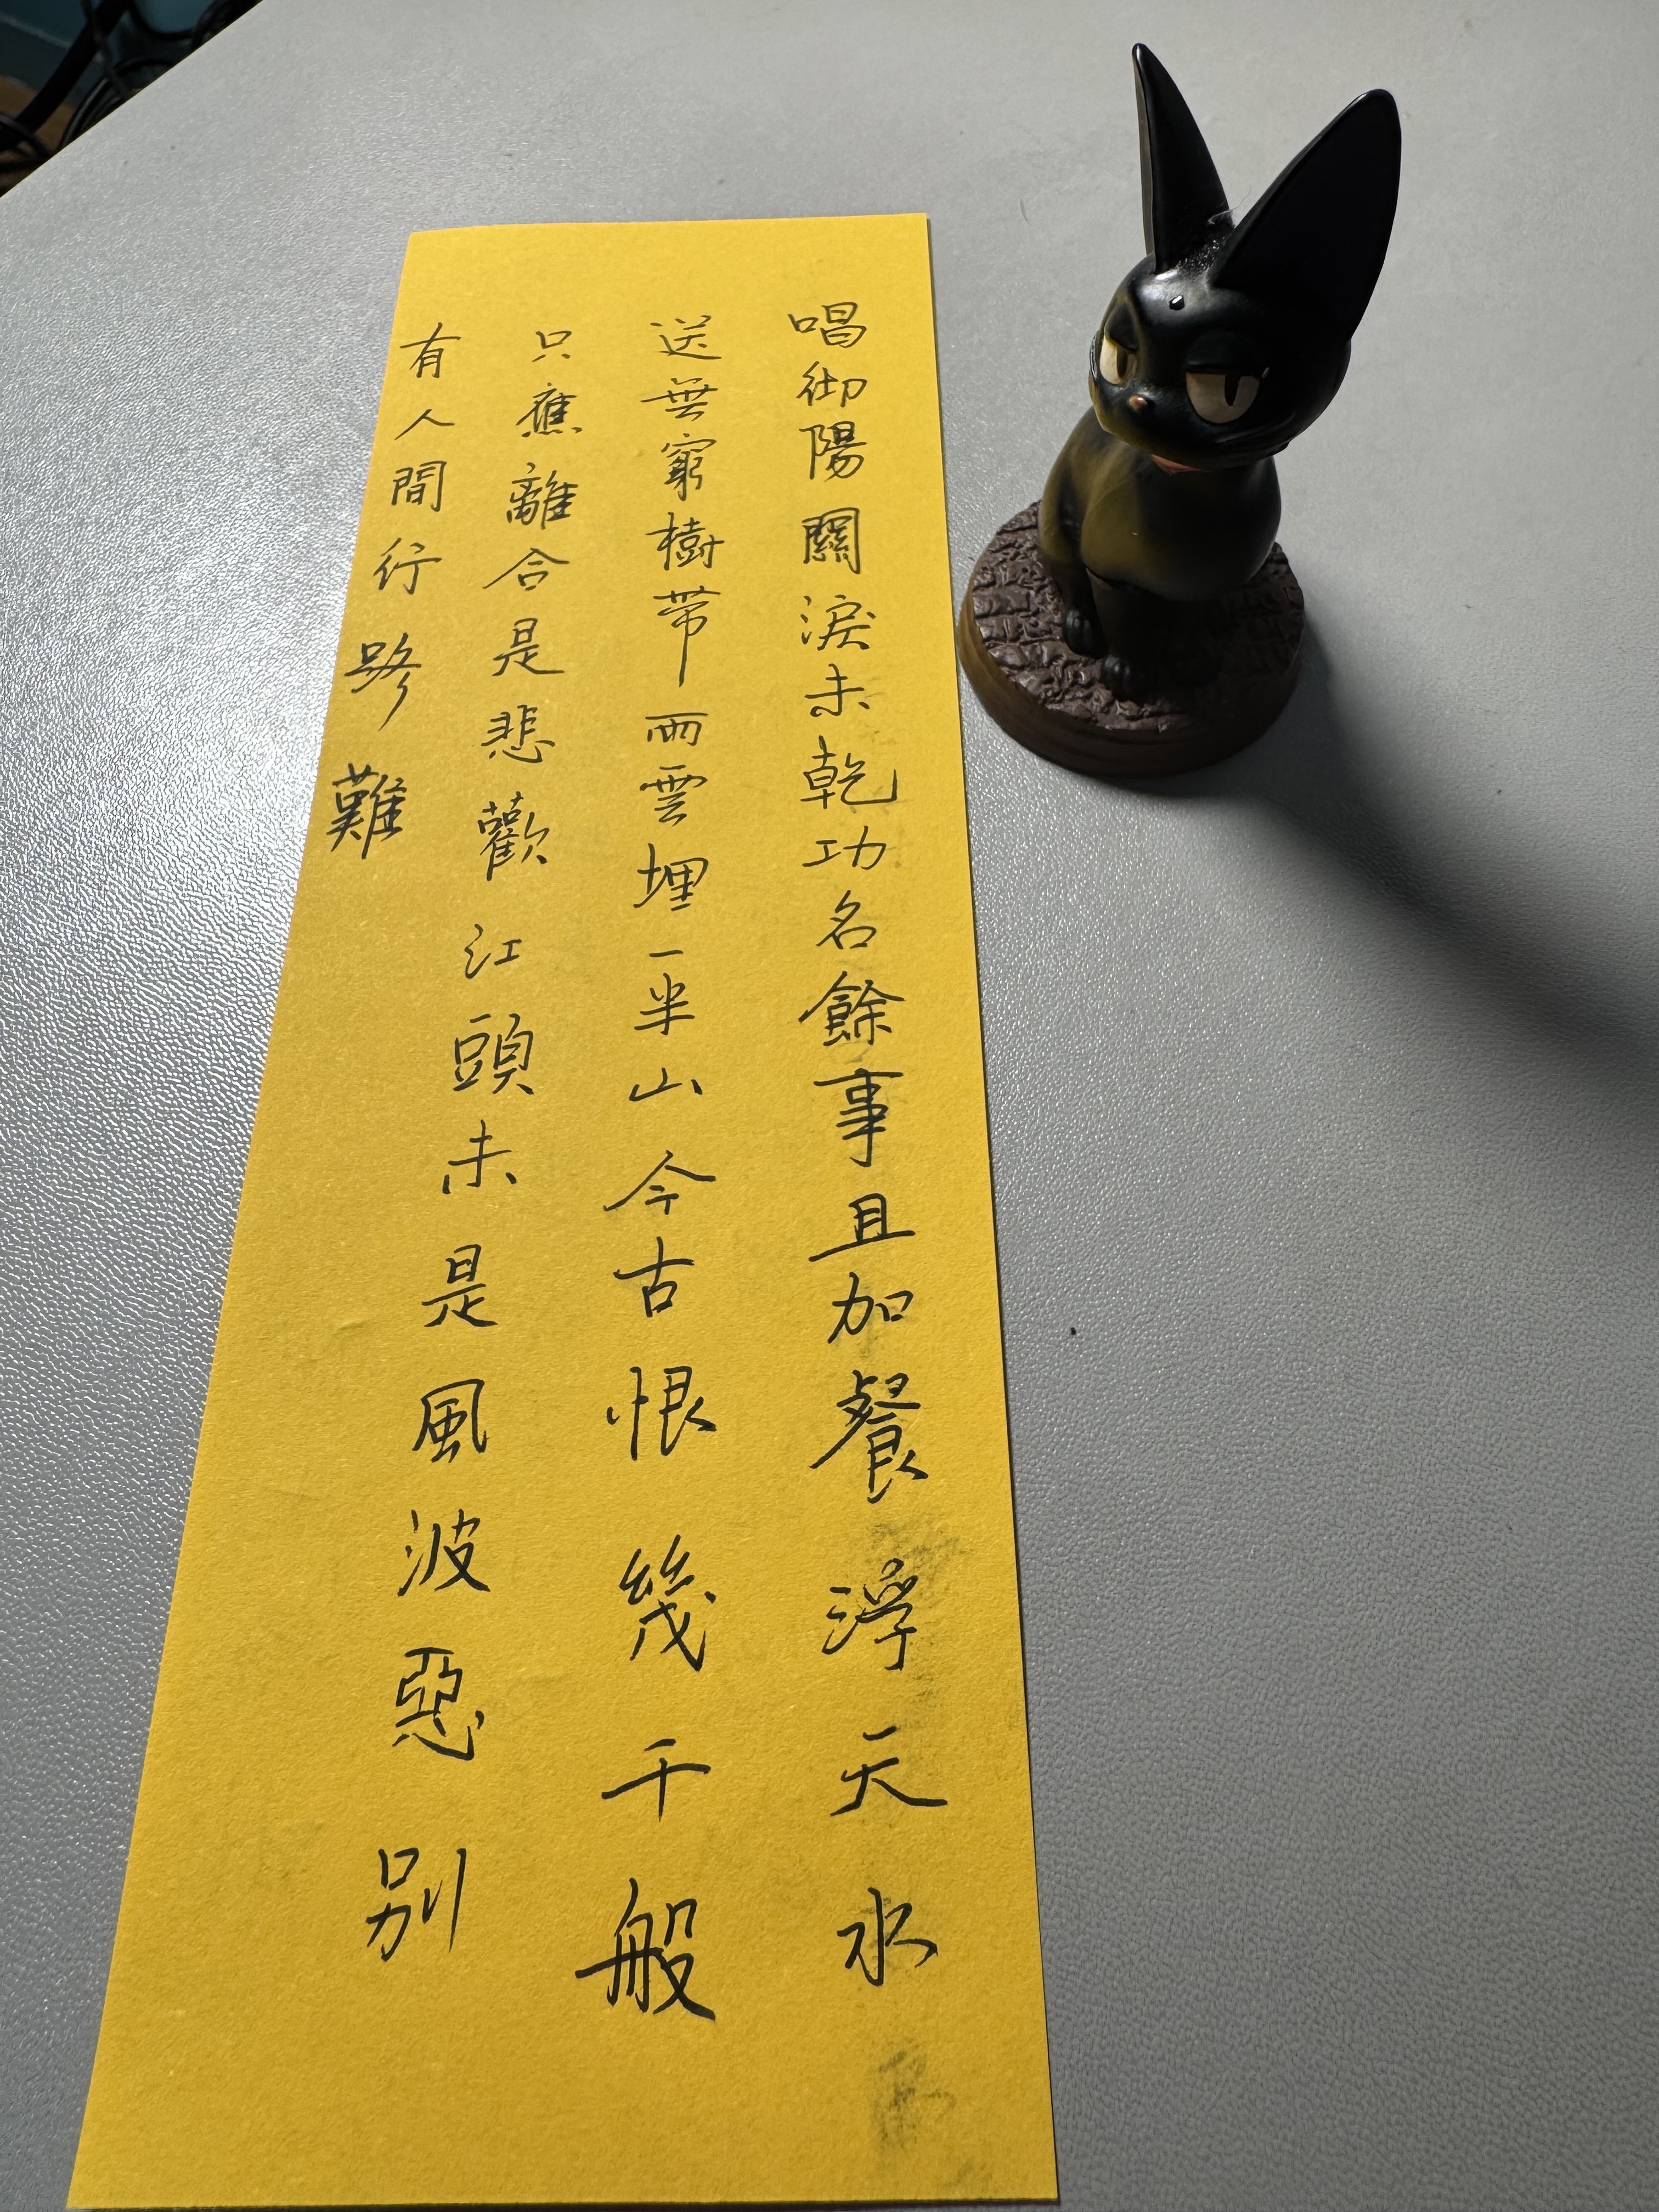 唱彻陽關淚未乾功名餘事且加餐浮天水
送無窮樹帶雨雲埋一半山今古恨幾千般
只應離合是悲歡江頭未是風波惡别
有人間行路難